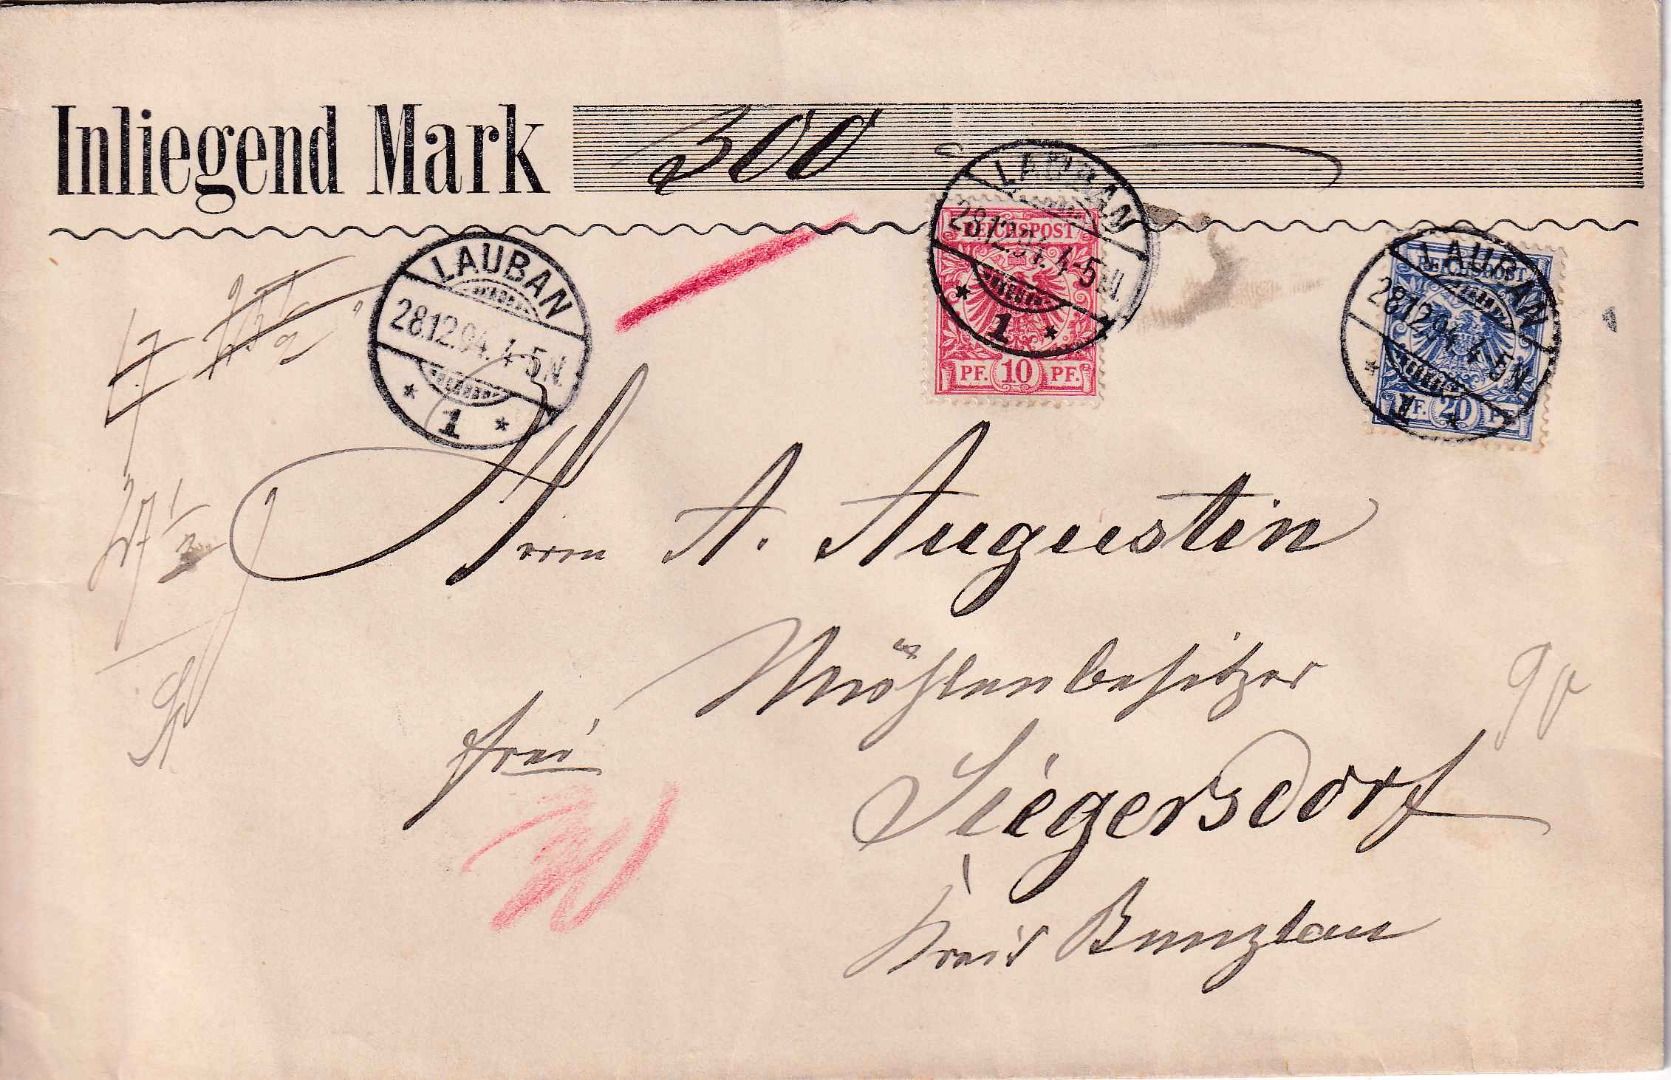 Inliegend Mark 300
LAUBAN
28.12.94. 4-5 N.
1
LAUBAN
28.12.94. 4-5 N.
1
REICHSPOST
PF. 10 PF.
LAUBAN
28.12.94. 4-5 N.
1
REICHSPOST
PF. 20 PF.
27 1/2
Herrn A. Augustin
Mühlenbesitzer
frei
90
Siegersdorf
Kreis Bunzlau